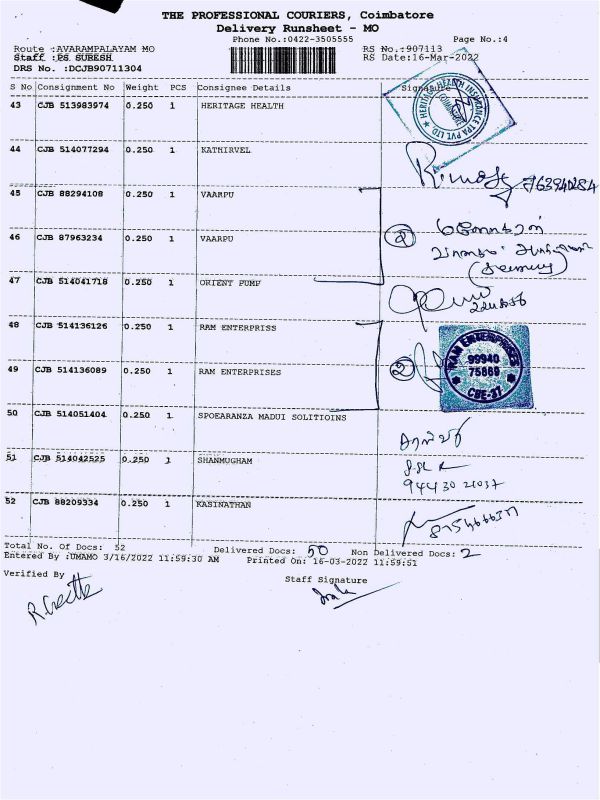 THE PROFESSIONAL COURIERS, Coimbatore
Delivery Runsheet - MO
Phone No.:0422-3505555 Page No.:4
Route :AVARAMPALAYAM MO RS No.:907113
Staff :PS SURESH RS Date:16-Mar-2022
DRS No. :DCJB90711304
S No Consignment No Weight PCS Consignee Details Signature
43 CJB 513983974 0.250 1 HERITAGE HEALTH
HERITAGE HEALTH INSURANCE TPA PVT LTD
COIMBATORE
44 CJB 514077294 0.250 1 KATHIRVEL
45 CJB 88294108 0.250 1 VAARPU
46 CJB 87963234 0.250 1 VAARPU
47 CJB 514041718 0.250 1 ORIENT PUMP
48 CJB 514136126 0.250 1 RAM ENTERPRISS
RAM ENTERPRISES
99940
75869
CBE-37
49 CJB 514136089 0.250 1 RAM ENTERPRISES
50 CJB 514051404 0.250 1 SPOEARANZA MADUI SOLITIOINS
51 CJB 514042525 0.250 1 SHANMUGHAM
94430 21037
52 CJB 88209334 0.250 1 KASINATHAN
Total No. Of Docs: 52 Delivered Docs: 50 Non Delivered Docs: 2
Entered By :UMAMO 3/16/2022 11:59:30 AM Printed On: 16-03-2022 11:59:51
Verified By Staff Signature